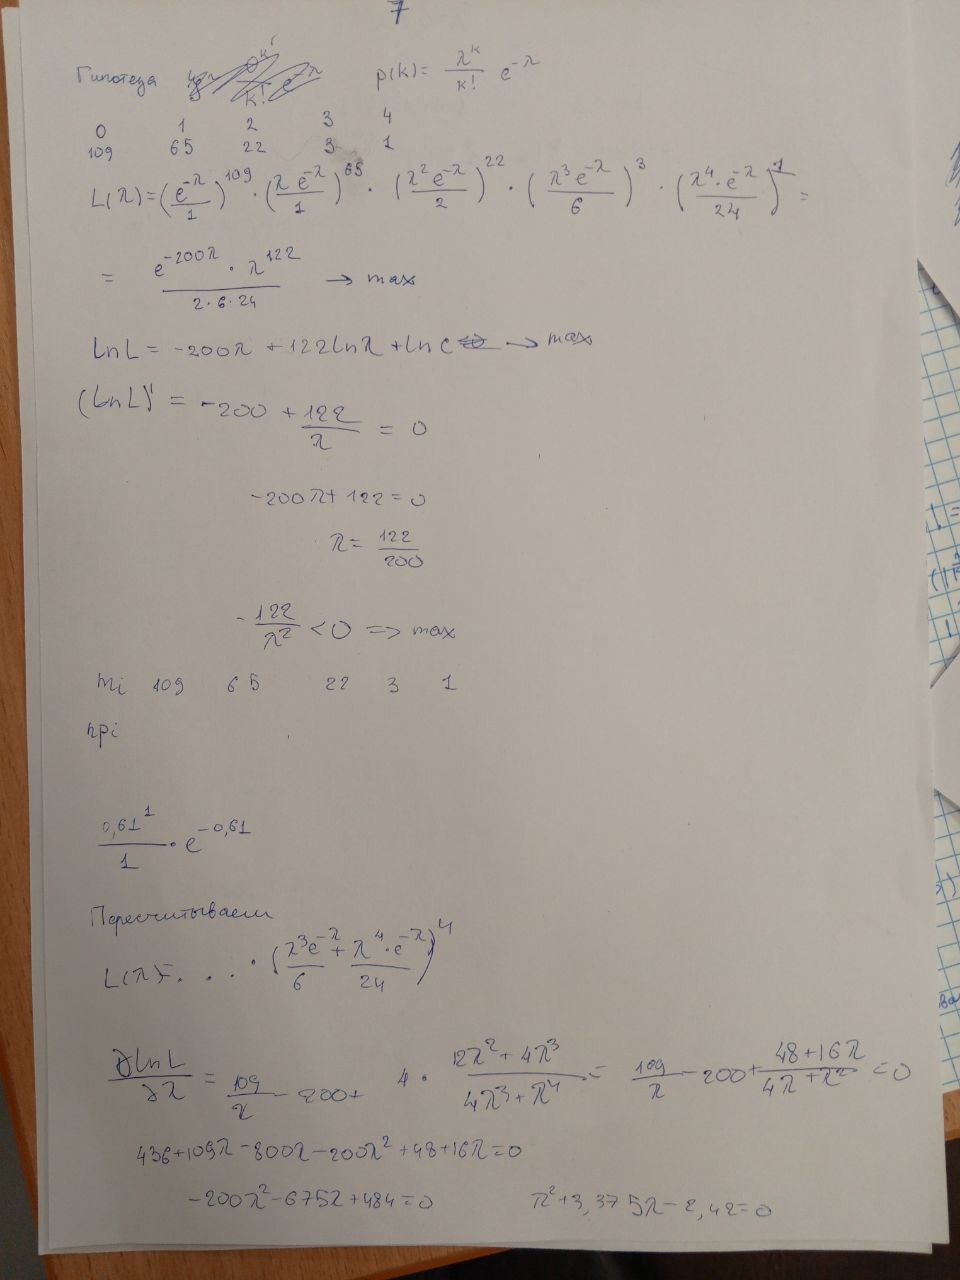 7
Гипотеза p(k) = λ^k / k! e^-λ
0 1 2 3 4
109 65 22 3 1
L(λ) = (e^-λ / 1)^109 · (λ e^-λ / 1)^65 · (λ^2 e^-λ / 2)^22 · (λ^3 e^-λ / 6)^3 · (λ^4 · e^-λ / 24)^1 =
= e^-200λ · λ^122 / 2·6·24 → max
ln L = -200λ + 122 ln λ + ln c → max
(ln L)' = -200 + 122 / λ = 0
-200λ + 122 = 0
λ = 122 / 200
- 122 / λ^2 < 0 => max
mi 109 65 22 3 1
npi
0,61^1 / 1 · e^-0,61
Пересчитываем
L(λ) = . . . · (λ^3 e^-λ / 6 + λ^4 · e^-λ / 24)^4
∂ ln L / ∂λ = 109 / λ - 200 + 4 · 12λ^2 + 4λ^3 / 4λ^3 + λ^4 = 109 / λ - 200 + 48 + 16λ / 4λ + λ^2 = 0
436 + 109λ - 800λ - 200λ^2 + 48 + 16λ = 0
-200λ^2 - 675λ + 484 = 0 λ^2 + 3,375λ - 2,42 = 0